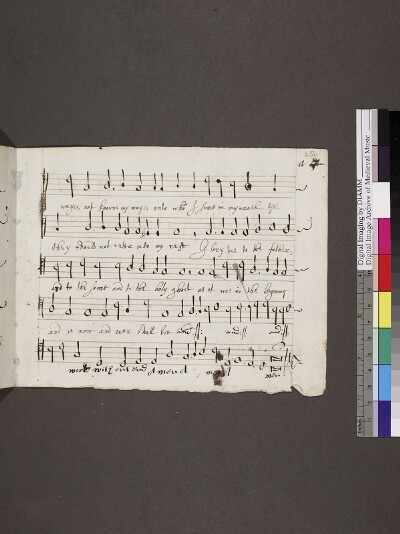 wayes not knowen my wayes unto who I sware in my wrath &c
they should not enter into my rest Glory bee to the father
and to the sonne and to the holy ghost as it was in the beginning
and is now and ever shall bee and
world without end Amen
men
Digital Imaging by DIAMM
Digital Image Archive of Medieval Music